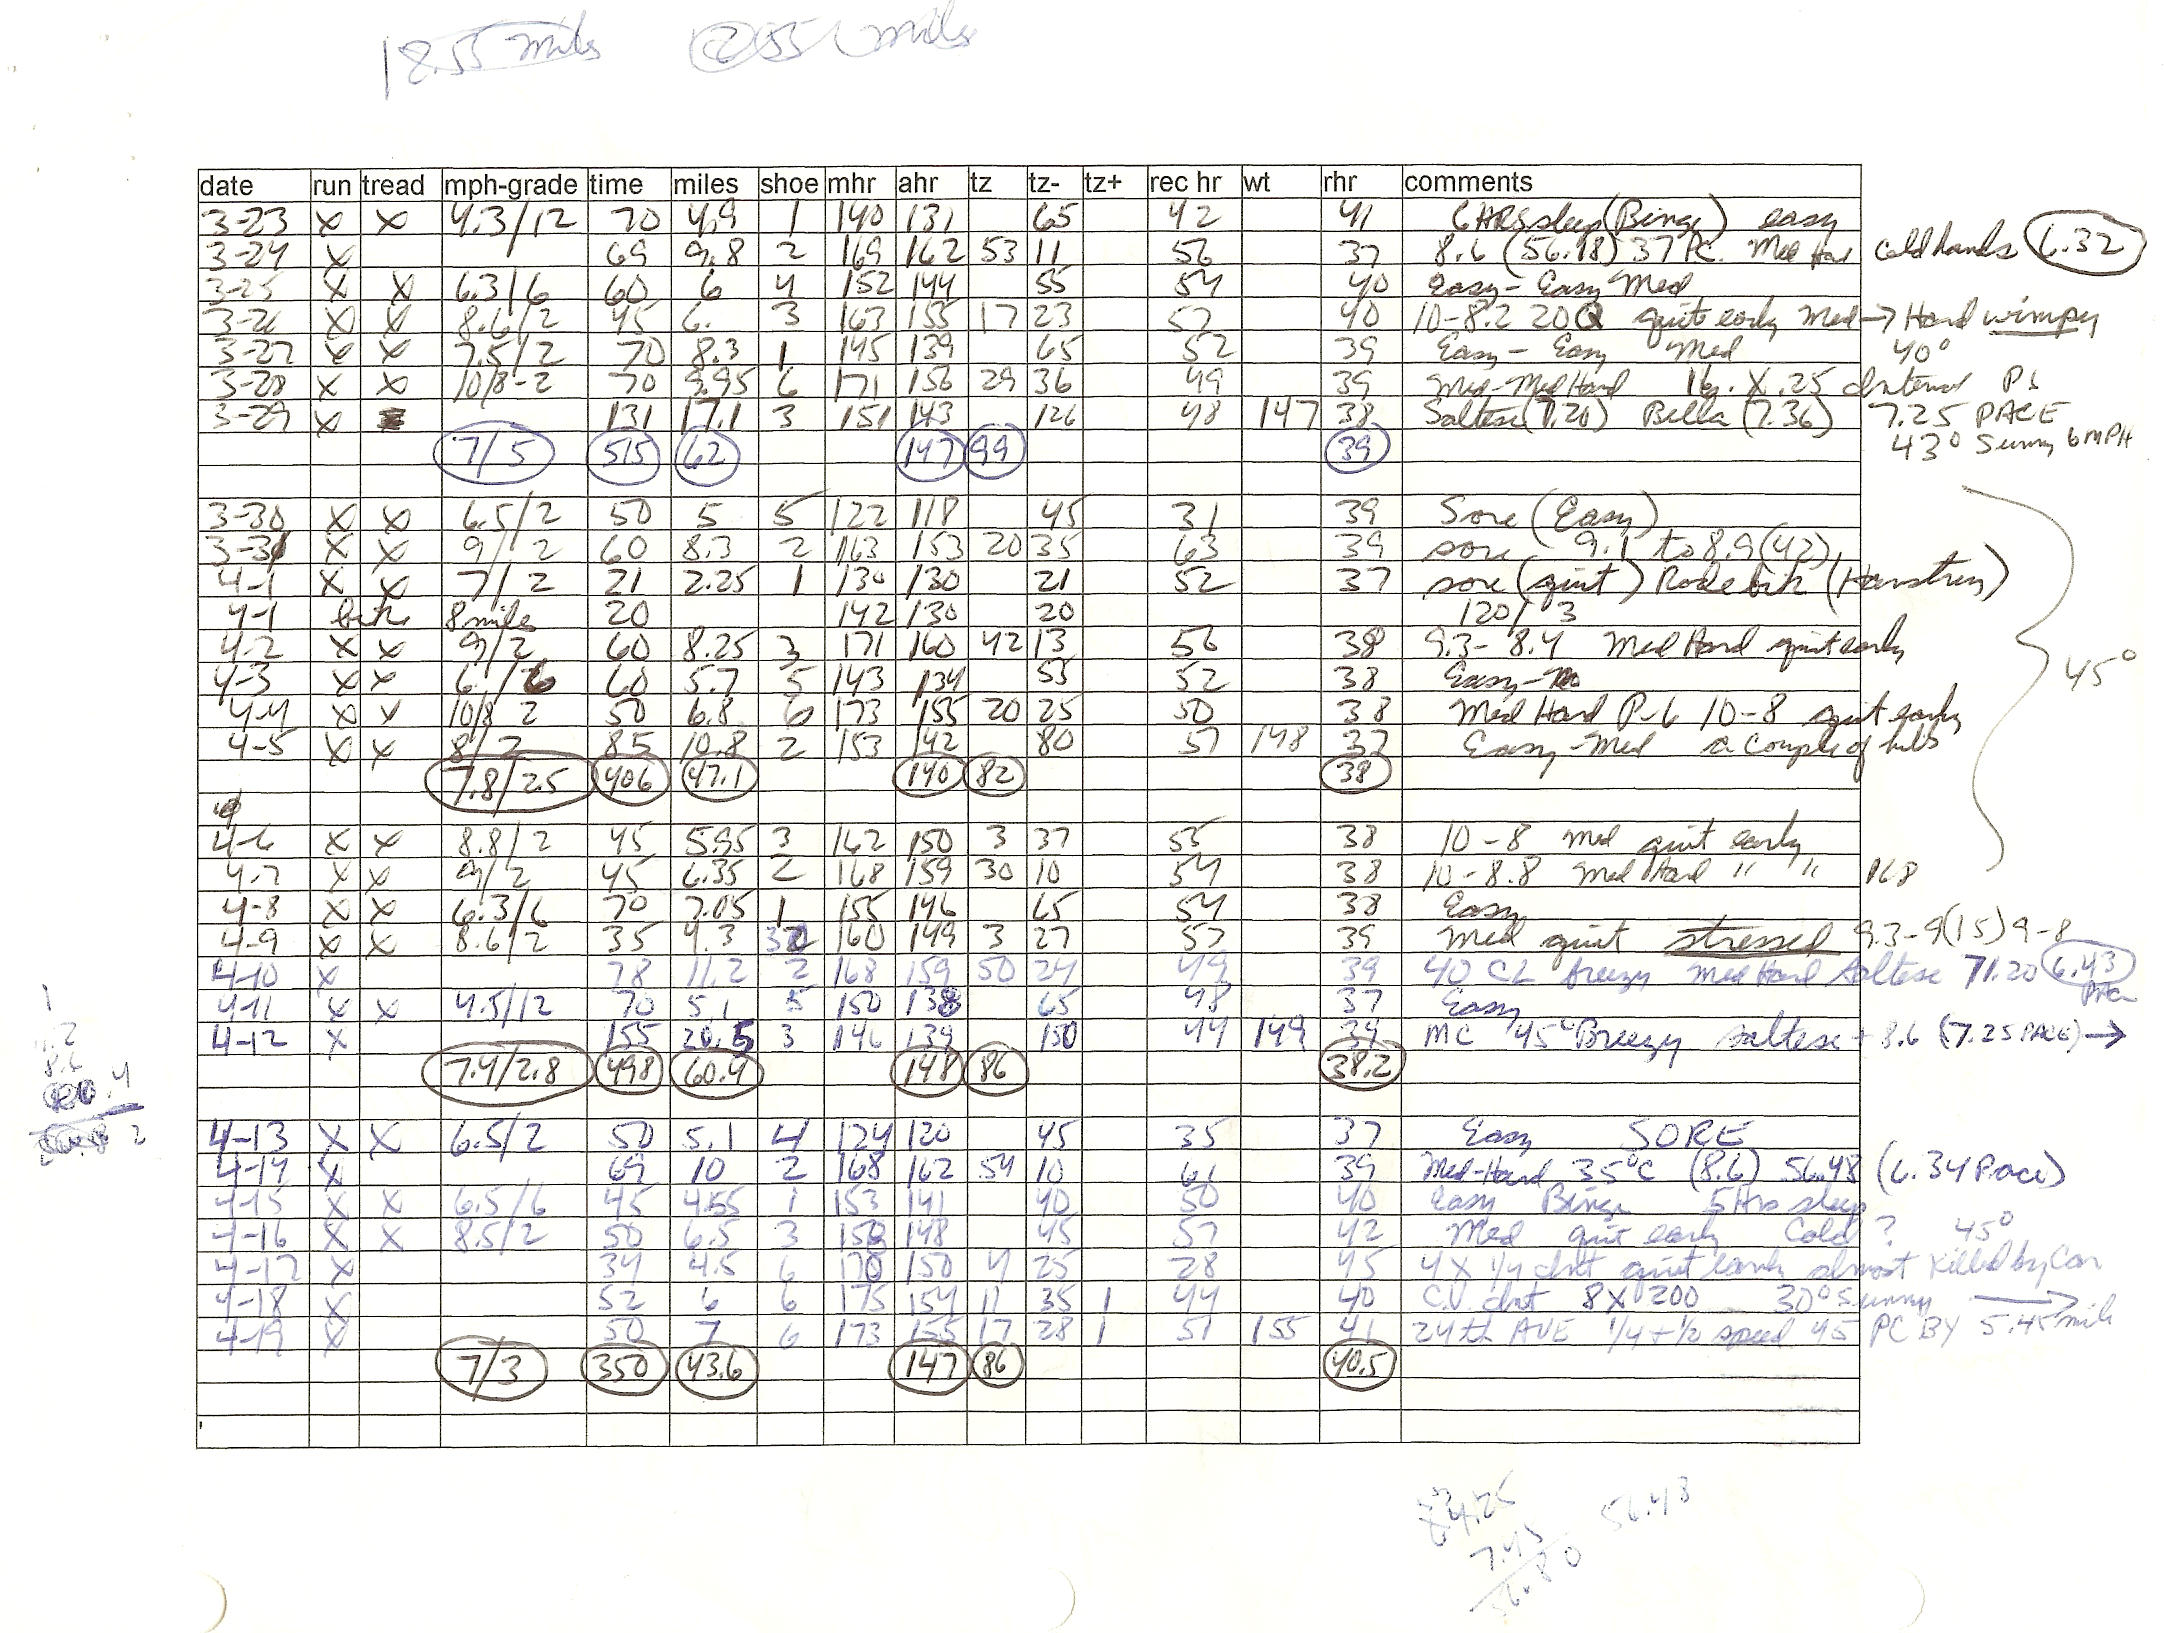 18.55 miles miles
date run tread mph-grade time miles shoe mhr ahr tz tz- tz+ rec hr wt rhr comments
3-23 x x 4.3/12 70 4.9 1 140 131 65 42 41 6 HRS sleep (Binge) easy
3-24 x 69 9.8 2 169 162 53 11 56 37 8.6 (56.18) 37 PC. Med Hard cold hands 6.32
3-25 x x 6.3/6 60 6 4 152 144 55 54 40 Easy-Easy Med
3-26 x x 8.6/2 45 6. 3 163 155 17 23 57 40 10-8.2 20 Q quit early Med→Hard wimpy
3-27 x x 7.5/2 70 8.3 1 145 139 65 52 39 Easy-Easy Med 40°
3-28 x x 10/8-2 70 9.95 6 171 156 29 36 49 39 Med-Med Hard 16 x .25 Interval
3-29 x 131 17.1 3 151 143 126 48 147 38 Saltese (7.20) Bella (7.36) 7.25 PACE
7/5 515 62 147 99 39 43° Sunny 6 MPH
3-30 x x 6.5/2 50 5 5 122 118 45 31 39 Sore (Easy)
3-31 x x 9/2 60 8.3 2 163 153 20 35 63 39 sore 9.1 to 8.9 (42)
4-1 x x 7/2 21 2.25 1 130 130 21 52 37 sore (quit) Rode bike (Hamstring)
4-1 bike 8 miles 20 142 130 20 120/3
4-2 x x 9/2 60 8.25 3 171 160 42 13 56 38 9.3-8.4 Med Hard quit early
4-3 x x 6./6 60 5.7 5 143 134 55 52 38 Easy 45°
4-4 x x 10/8 2 50 6.8 6 173 155 20 25 50 38 Med Hard P-6 10-8 quit early
4-5 x x 8/2 85 10.8 2 153 142 80 57 148 37 Easy-Med a couple of hills
7.8/2.5 406 47.1 140 82 38
4-6 x x 8.8/2 45 5.95 3 162 150 3 37 55 38 10-8 med quit early
4-7 x x 9/2 45 6.35 2 168 159 30 10 54 38 10-8.8 Med Hard " " 168
4-8 x x 6.3/6 70 7.05 1 155 146 65 54 38 Easy
4-9 x x 8.6/2 35 4.3 160 149 3 27 57 39 Med quit stressed 9.3-9(15)9-8
4-10 x 78 11.2 2 168 159 50 24 49 39 40 CL breezy Med Hard Saltese 71.20 6.43 PACE
4-11 x x 4.5/12 70 5.1 5 150 138 65 48 37 Easy
4-12 x 155 20.5 3 146 139 150 44 149 39 MC 45° Breezy saltese + 8.6 (7.25 PACE) →
7.4/2.8 498 60.4 148 86 38.2
4-13 x x 6.5/2 50 5.1 4 124 120 45 35 37 Easy SORE
4-14 x 69 10 2 168 162 54 10 61 39 Med-Hard 35°C (8.6) 56.48 (6.34 Pace)
4-15 x x 6.5/6 45 4.55 1 153 141 40 50 40 easy Binge 5 Hrs sleep
4-16 x x 8.5/2 50 6.5 3 158 148 45 57 42 Med quit early Cold? 45°
4-17 x 34 4.5 6 170 150 4 25 28 45 4 x 1/4 Int quit early almost killed by Car
4-18 x 52 6 6 175 154 11 35 1 44 40 C.V. Int 8 x 200 30° Sunny →
4-19 x 50 7 6 173 155 17 28 1 51 155 41 24th AVE 1/4 + 1/2 speed 45 PC BY 5.45 mile
7/3 350 43.6 147 86 40.5
7.45
56.48